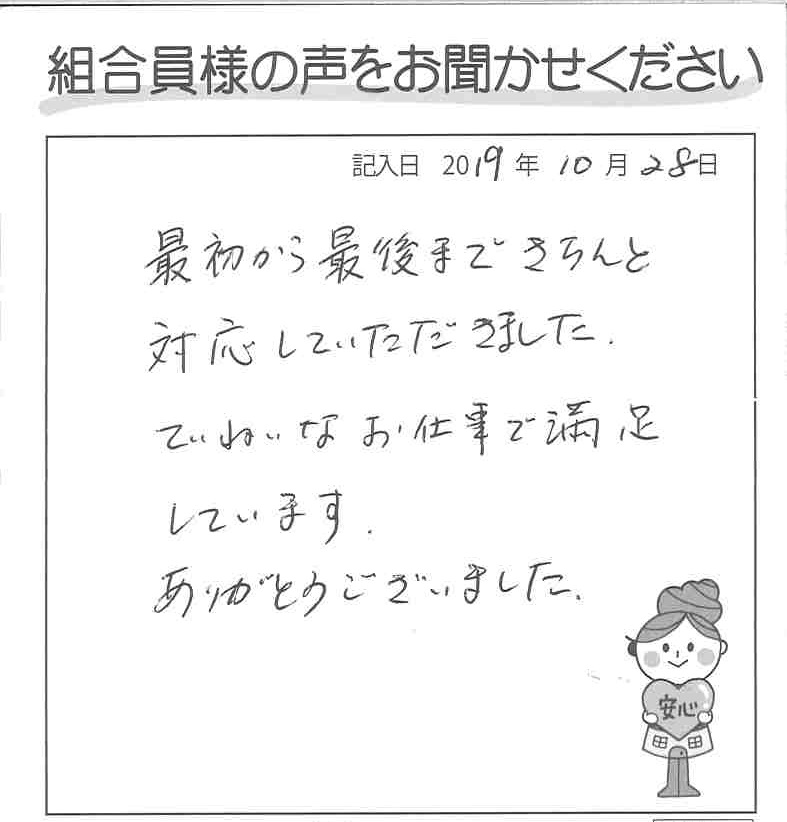 組合員様の声をお聞かせください
記入日 2019年 10月 28日
最初から最後まできちんと
対応していただきました.
ていねいなお仕事で満足
しています.
ありがとうございました.
安心